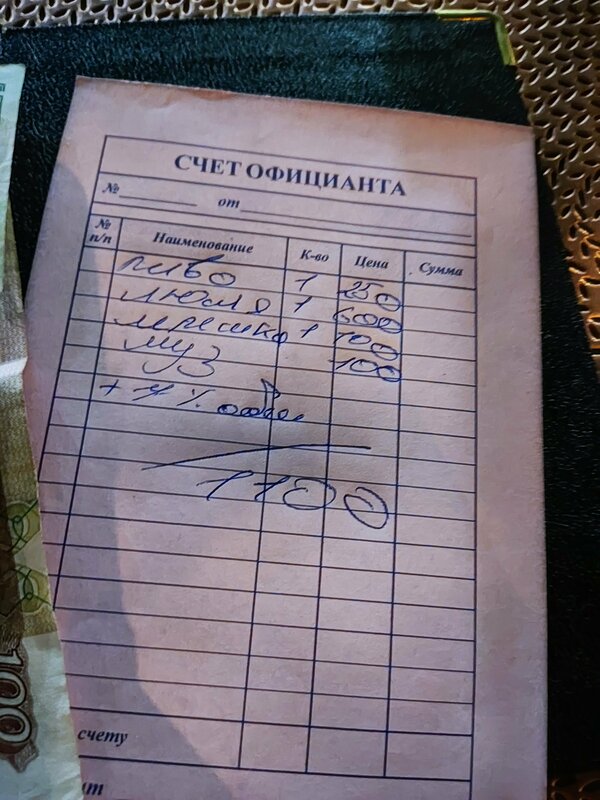 СЧЕТ ОФИЦИАНТА
№ от
№ п/п Наименование К-во Цена Сумма
пиво 1 250
люля 1 600
1 100
муз 100
+ %
1100
счету
100